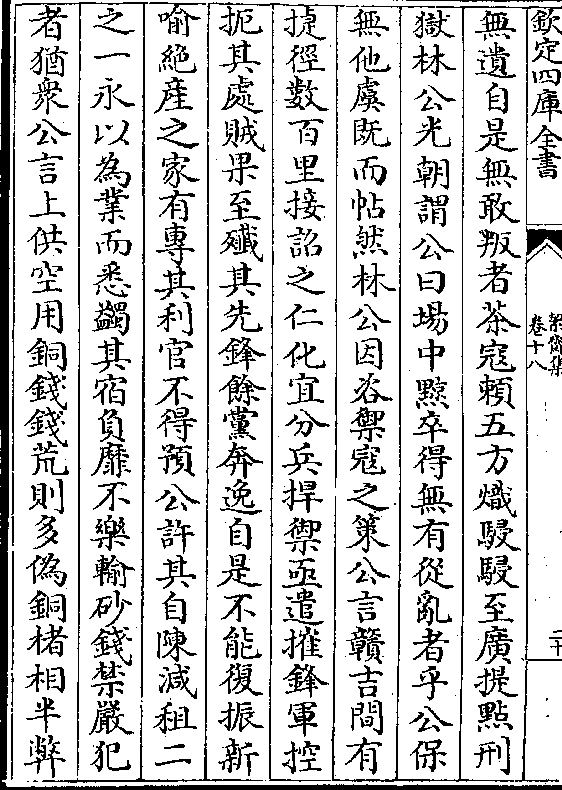 欽定四庫全書
絜齋集
卷十八
二十
無遺自是無敢叛者茶寇賴五方熾駸駸至廣提點刑
獄林公光朝謂公曰場中㸃卒得無有從亂者乎公保
無他虞既而帖然林公因咨禦寇之策公言贛吉間有
捷徑數百里接韶之仁化宜分兵捍禦亟遣摧鋒軍控
扼其處賊果至殲其先鋒餘黨奔逸自是不能復振新
喻絶産之家有專其利官不得預公許其自陳減租二
之一永以為業而悉蠲其宿負靡不樂輸砂錢禁嚴犯
者猶衆公言上供空用銅錢錢荒則多偽銅楮相半弊